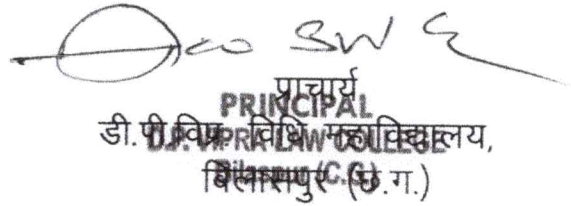 प्राचार्य
PRINCIPAL
डी.पी.विप्र विधि महाविद्यालय,
D.P. VIPRA LAW COLLEGE
बिलासपुर (छ.ग.)
Bilaspur (C.G.)